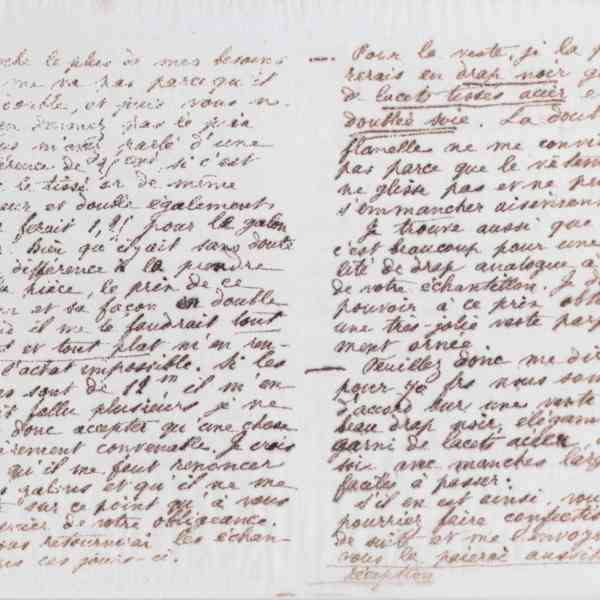 le plus de mes besoins
me va pas parce qu'il
double, et puis vous ne
donnez pas le prix
parlé d'une
si c'est
le tissé or de même
et doublé également
ferait 1, pour le galon
Bien qu'il y ait sans doute
différence à la prendre
pièce, le prix de ce
et sa façon en double
il me le faudrait tout
et tout plat m'en ren-
l'achat impossible. Si les
sont de 12 m il m'en
fallu plusieurs je ne
donc accepter qu'une chose
convenable. Je crois
qu'il me faut renoncer
galons et qu'il ne me
sur ce point qu'à vous
de votre obligeance.
retournerai les échan-
ces jours-ci.
— Pour la veste, je la p
rerais en drap noir ga
de lacets tissés acier e
doublée soie. La doub
flanelle ne me convi
pas parce que le vêtem
ne glisse pas et ne pe
s'emmancher aisémen
Je trouve aussi que
c'est beaucoup pour une
lité de drap analogue à
de votre échantillon. Je
pouvoir à ce prix obte
une très-jolie veste parf
ment ornée.
— Veuillez donc me di
pour frs nous som
d'accord sur une veste
beau drap noir, élégam
garni de lacets acier
soie avec manches larg
faciles à passer.
S'il en est ainsi, vou
pourriez faire confectio
de suite et me l'envoye
vous la paierai aussit
réception